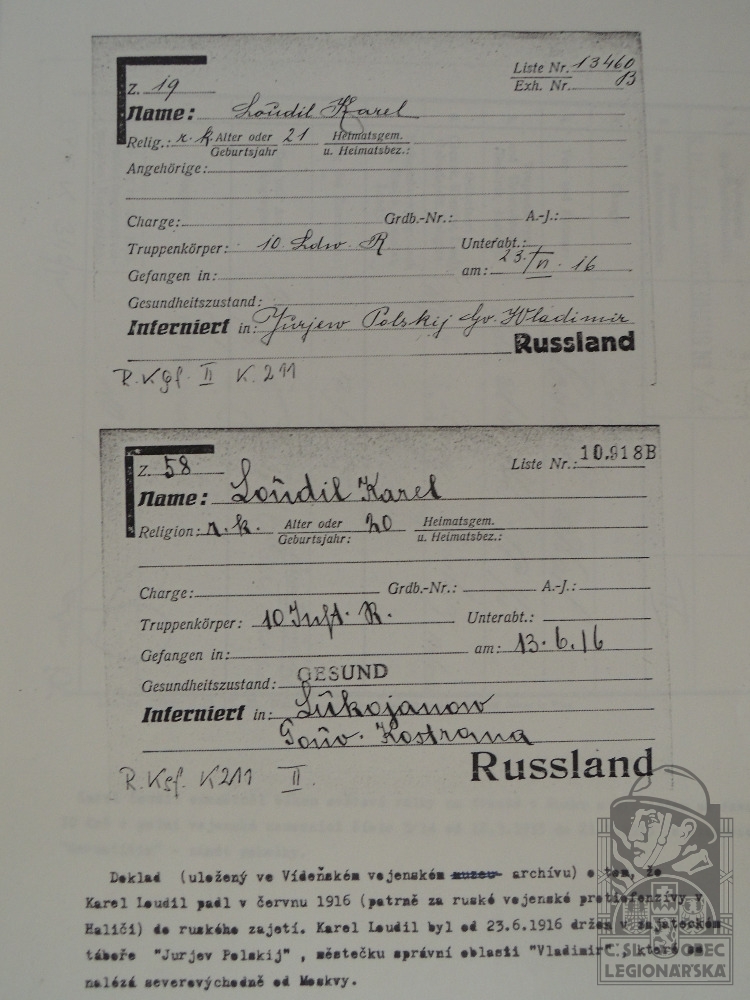 Z. 19
Liste Nr. 13460
Exh. Nr. B
Name: Loūdil Karel
Relig.: r. k. Alter oder Geburtsjahr 21 Heimatsgem. u. Heimatsbez.:
Angehörige:
Charge: Grdb.-Nr.: A.-J.:
Truppenkörper: 10. Ldw. R Unterabt.:
Gefangen in: am: 23./VI. 16
Gesundheitszustand:
Interniert in: Jurjew Polskij Gv. Wladimir
Russland
R. Kgf. II K. 211
Z. 58
Liste Nr.: 10.918B
Name: Loūdil Karel
Religion: r. k. Alter oder Geburtsjahr: 20 Heimatsgem. u. Heimatsbez.:
Charge: Grdb.-Nr.: A.-J.:
Truppenkörper: 10 Inft. R. Unterabt.:
Gefangen in: am: 13.6.16
Gesundheitszustand: GESUND
Interniert in: Lūkojanow
Goūv. Kostroma
Russland
R. Kgf. K211 II.
Doklad (uložený ve Vídeňském vojenském archívu) o tom, že
Karel Loudil padl v červnu 1916 (patrně za ruské vojenské protiofenzívy v
Haliči) do ruského zajetí. Karel Loudil byl od 23.6.1916 držen v zajateckém
táboře "Jurjev Polskij" , městečku správní oblasti "Vladimir", které se
nalézá severovýchodně od Moskvy.
ČESKOSLOVENSKÁ OBEC
LEGIONÁŘSKÁ